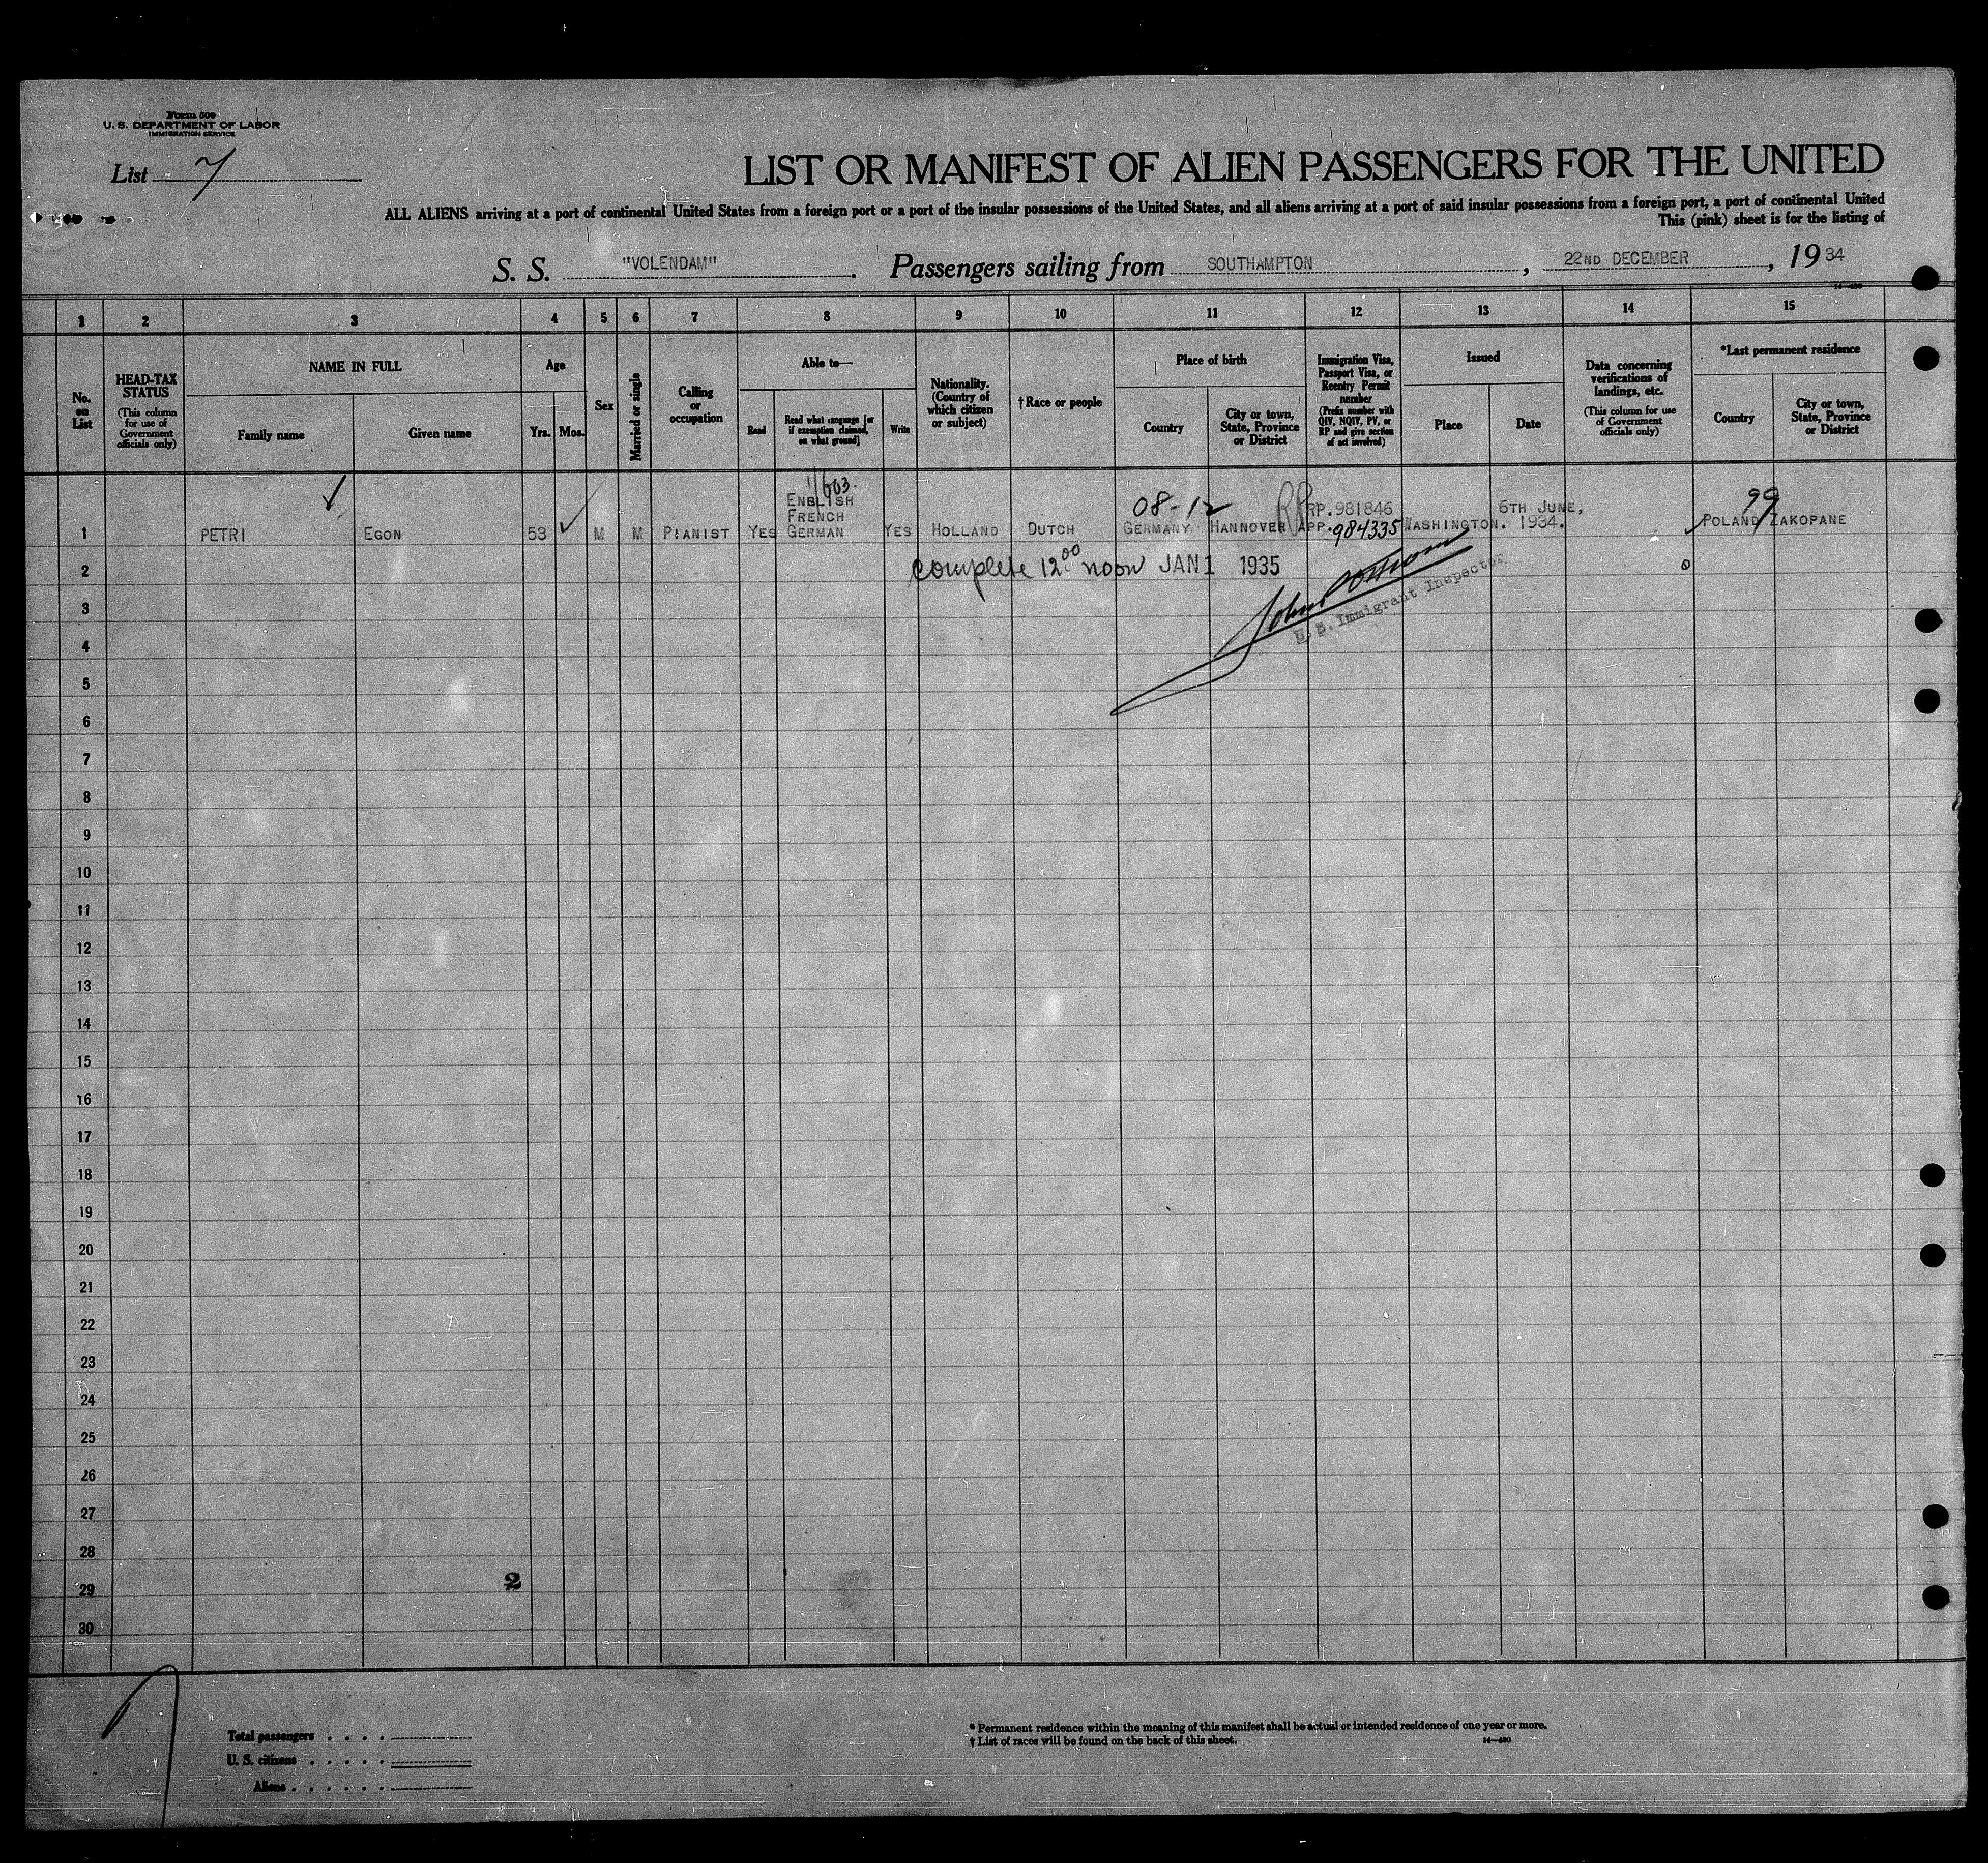 Form 500
U. S. DEPARTMENT OF LABOR
IMMIGRATION SERVICE
List 7
LIST OR MANIFEST OF ALIEN PASSENGERS FOR THE UNITED
ALL ALIENS arriving at a port of continental United States from a foreign port or a port of the insular possessions of the United States, and all aliens arriving at a port of said insular possessions from a foreign port, a port of continental United
This (pink) sheet is for the listing of
S. S. "VOLENDAM". Passengers sailing from SOUTHAMPTON, 22ND DECEMBER, 1934
1 2 3 4 5 6 7 8 9 10 11 12 13 14 15
No. on List
HEAD-TAX STATUS
(This column for use of Government officials only)
NAME IN FULL
Family name
Given name
Age
Yrs.
Mos.
Sex
Married or single
Calling or occupation
Able to—
Read
Read what language [or if exemption claimed, on what ground]
Write
Nationality. (Country of which citizen or subject)
† Race or people
Place of birth
Country
City or town, State, Province or District
Immigration Visa, Passport Visa, or Reentry Permit number
(Prefix number with QIV, NQIV, PV, or RP and give section of act involved)
Issued
Place
Date
Data concerning verifications of landings, etc.
(This column for use of Government officials only)
*Last permanent residence
Country
City or town, State, Province or District
603.
ENGLISH
08-12 RP RP.981846 6TH JUNE, 99
FRENCH
1 PETRI EGON 53 M M PIANIST YES GERMAN YES HOLLAND DUTCH GERMANY HANNOVER APP.984335 WASHINGTON. 1934. POLAND ZAKOPANE
2 complete 12 00 noon JAN 1 1935
U. S. Immigrant Inspector
3
4
5
6
7
8
9
10
11
12
13
14
15
16
17
18
19
20
21
22
23
24
25
26
27
28
2
29
30
Total passengers . . . .
U. S. citizens . . . . .
Aliens . . . . . .
* Permanent residence within the meaning of this manifest shall be actual or intended residence of one year or more.
† List of races will be found on the back of this sheet.